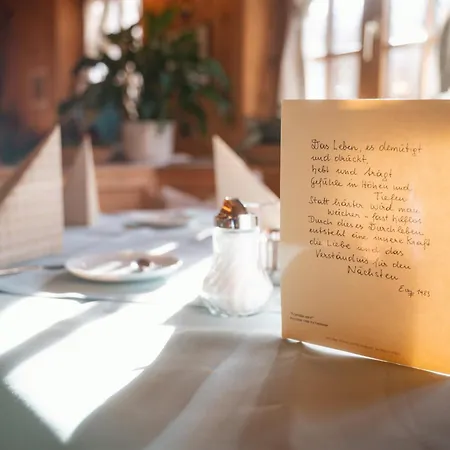 Das Leben, es demütigt
und drückt,
hebt und trägt
Gefühle in Höhen und
Tiefen
Statt härter wird man
weicher - fast hilflos
Durch dieses Erleben
entsteht eine innere Kraft
die Liebe und das
Verständnis für den
Nächsten
1983